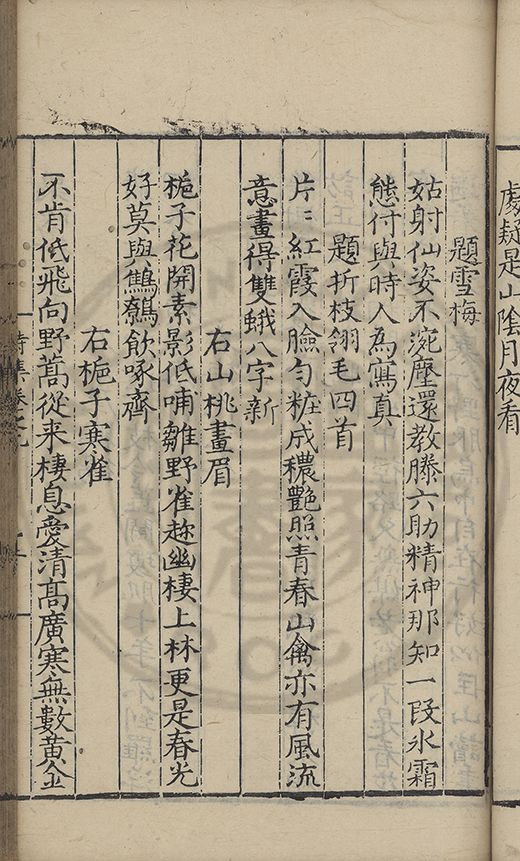 處疑是山陰月夜看
題雪梅
姑射仙姿不涴塵還教滕六助精神那知一段氷霜
態付與時人為寫真
題折枝翎毛四首
片〻紅霞入臉勻粧成穠艷照青春山禽亦有風流
意畫得雙蛾八字新
右山桃畫眉
梔子花開素影低哺雛野雀趂幽棲上林更是春光
好莫與鷦鷯飲啄齊
右梔子寒雀
不肯低飛向野蒿從来棲息愛清髙廣寒無數黄金